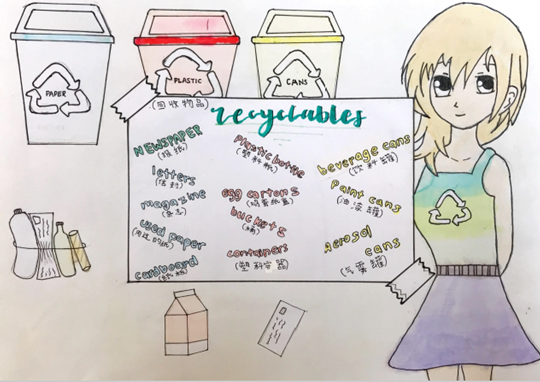 PAPER
PLASTIC
CANS
(回收物品)
recyclables
NEWSPAPER
(报纸)
letters
magazine
(杂志)
used paper
(用过的纸)
cardboard
Plastic bottle
(塑料瓶)
egg cartons
buckets
(桶)
containers
(塑料容器)
beverage cans
(饮料罐)
Paint cans
(油漆罐)
Aerosol
cans
(气雾罐)